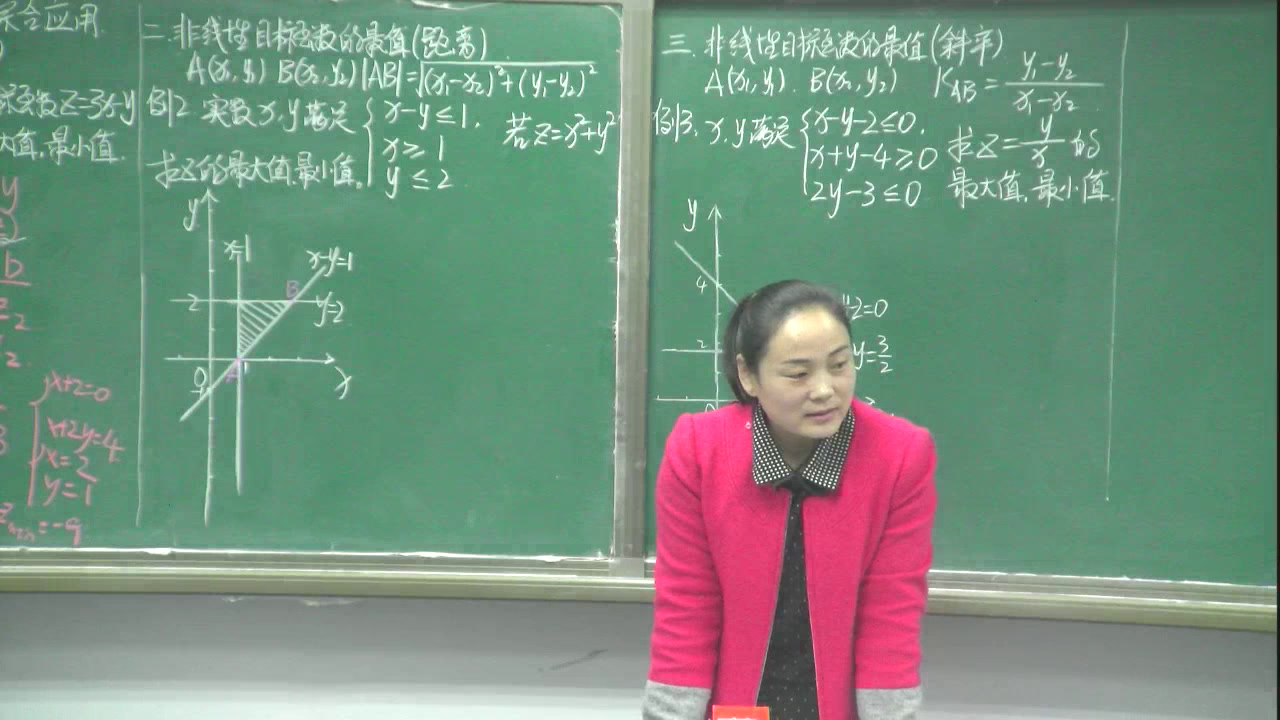 综合应用
求函数Z=3x-y
大值,最小值.
y
b
x+2=0
x+2y=4
x=2
y=1
Zmin=-9
二.非线性目标函数的最值(距离)
A(x₁,y₁) B(x₂,y₂) |AB|=√(x₁-x₂)²+(y₁-y₂)²
例2 实数x,y满足 { x-y≤1, 若Z=x²+y²
x≥1
求Z的最大值,最小值。
y≤2
y
x=1
x-y=1
2
B
y=2
0
A
1
x
三.非线性目标函数的最值(斜率)
A(x₁,y₁). B(x₂,y₂) K_AB=(y₁-y₂)/(x₁-x₂)
例3. x,y满足 { x-y-2≤0. 求Z=y/x的
x+y-4≥0
2y-3≤0 最大值,最小值.
y
4
-2=0
2
y=3/2
0